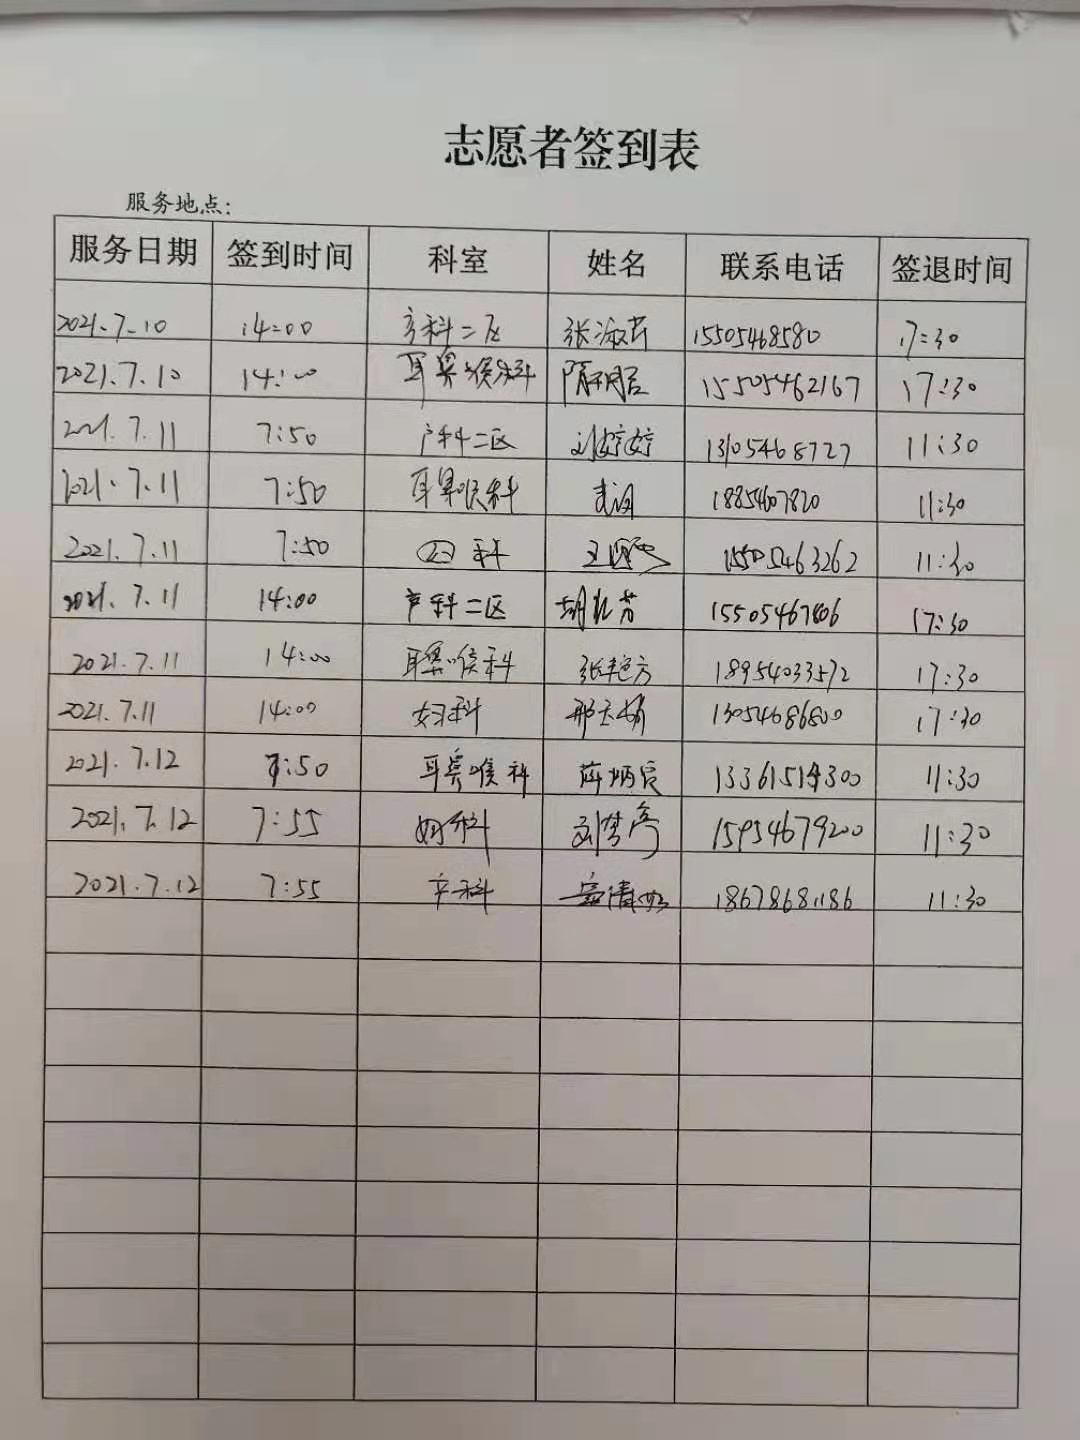 志愿者签到表
服务地点:
服务日期 签到时间 科室 姓名 联系电话 签退时间
2021.7.10 14:00 产科二区 张淑芹 15505468580 17:30
2021.7.10 14:00 耳鼻喉科 15505462167 17:30
2021.7.11 7:50 产科二区 刘婷婷 13105468727 11:30
2021.7.11 7:50 耳鼻喉科 11:30
2021.7.11 7:50 科 15505463262 11:30
2021.7.11 14:00 产科二区 15505467806 17:30
2021.7.11 14:00 耳鼻喉科 张艳方 18954033572 17:30
2021.7.11 14:00 妇科 13054686800 17:30
2021.7.12 7:50 耳鼻喉科 薛炳辰 11:30
2021.7.12 7:55 妇科 15954679200 11:30
2021.7.12 7:55 产科 18678681186 11:30